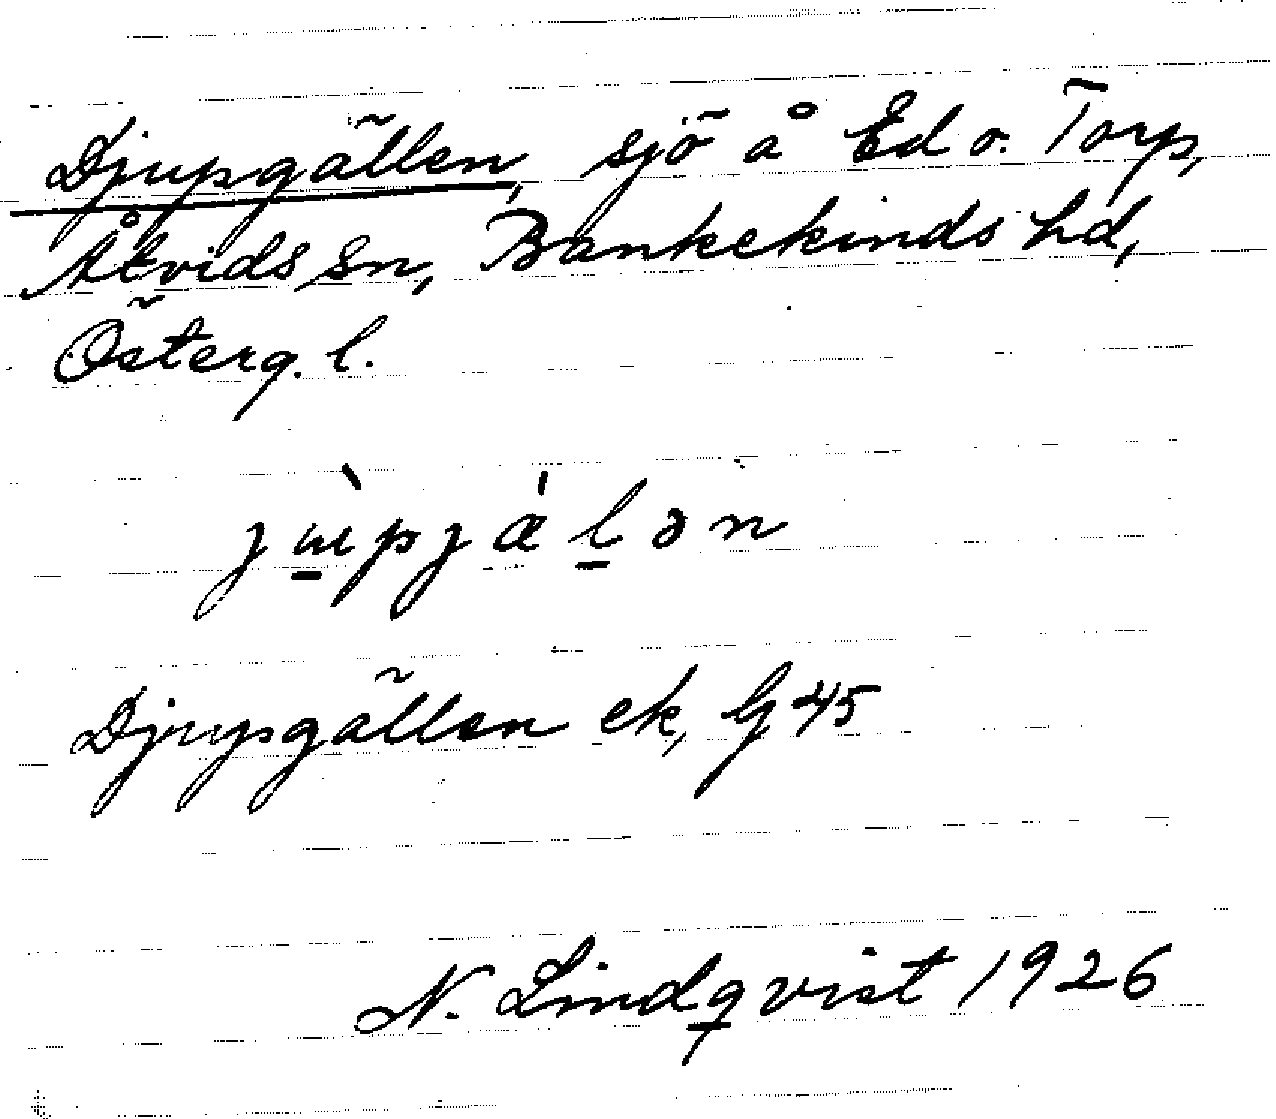 Djupgällen, sjö å Ed o. Torp,
Åtvids sn, Bankekinds hd,
Österg. l.
Djupgällen ek, G 45
N. Lindqvist 1926